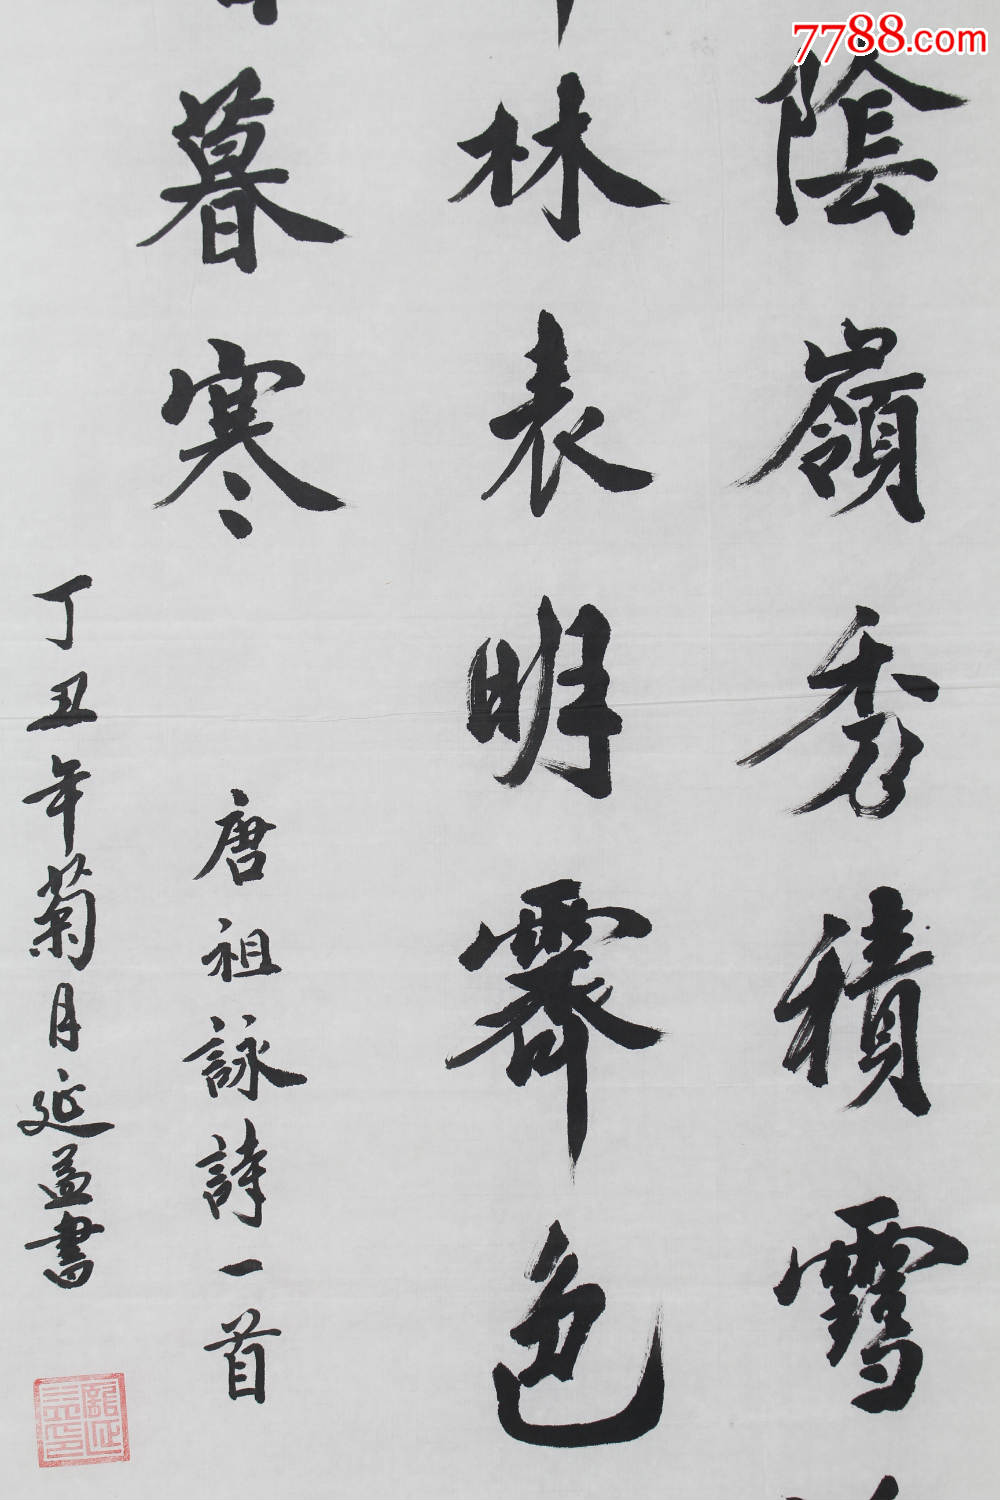 7788.com
陰嶺秀積雪
林表明霽色
暮寒
唐祖詠詩一首
丁丑年菊月延益書